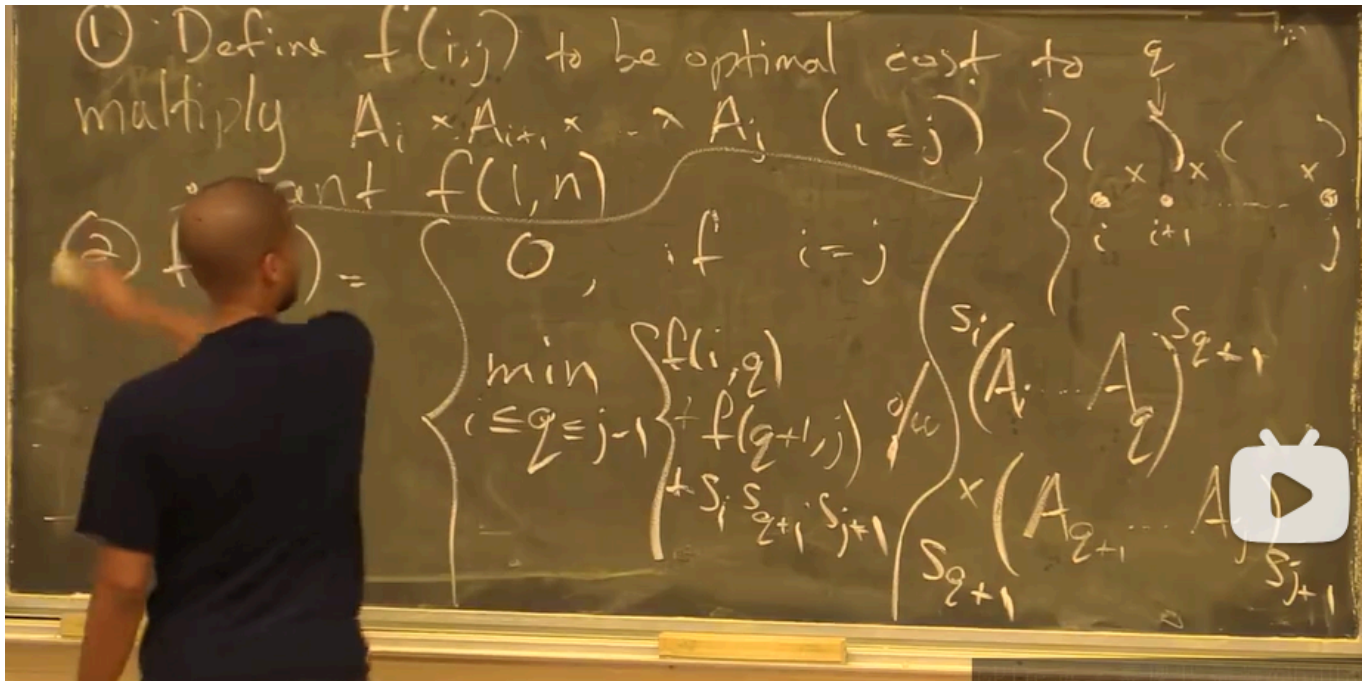 ① Define f(i,j) to be optimal cost to
multiply A_i × A_{i+1} × ... × A_j (i ≤ j)
f(1,n)
② f ) = { 0, if i = j
min i ≤ q ≤ j-1 { f(i,q)
+ f(q+1,j)
+ S_i S_{q+1} · S_{j+1}
q
↓
( × ) × ( × )
i i+1 ...... j
S_i (A_i .... A_q) S_{q+1}
× (A_{q+1} .... A_j)
S_{q+1} S_{j+1}